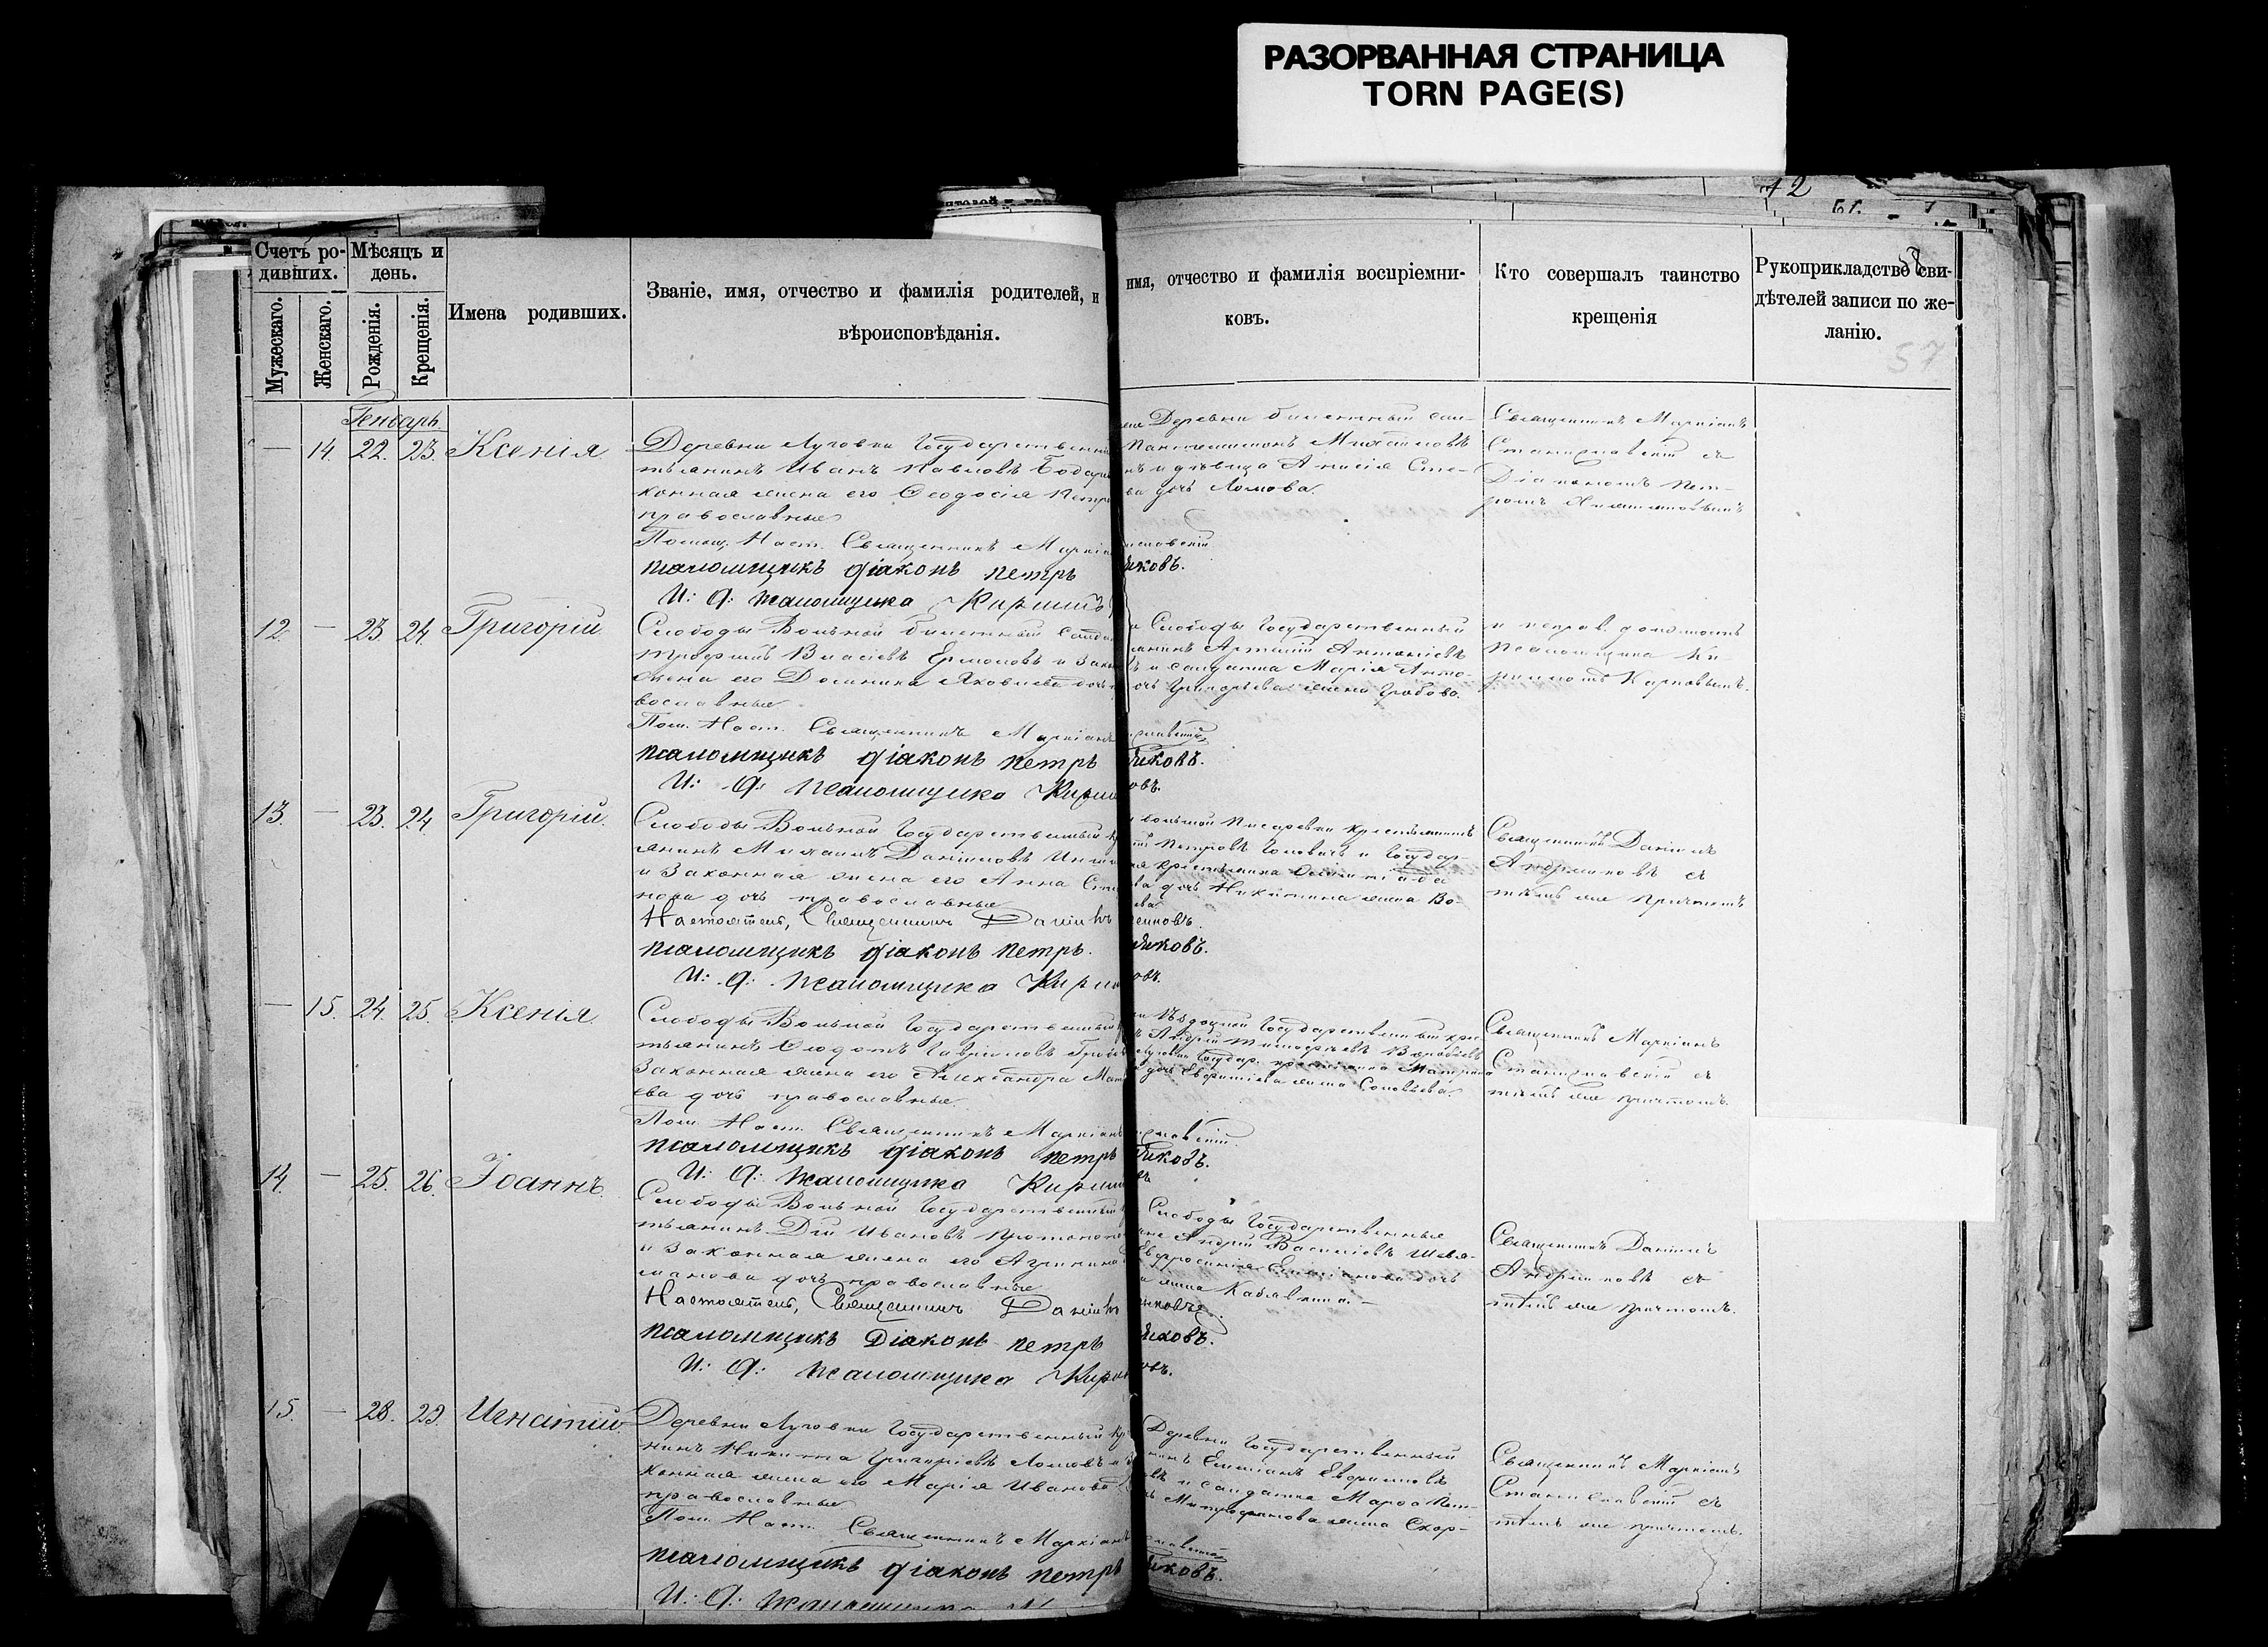 РАЗОРВАННАЯ СТРАНИЦА
TORN PAGE(S)
42
58
57
Счетъ ро-
дившихъ.
Мѣсяцъ и
день.
Мужескаго.
Женскаго.
Рожденія.
Крещенія.
Имена родившихъ.
Званіе, имя, отчество и фамилія родителей, и
вѣроисповѣданія.
имя, отчество и фамилія воспріемни-
ковъ.
Кто совершалъ таинство
крещенія
Рукоприкладство сви-
дѣтелей записи по же-
ланію.
Генварь.
— 14. 22. 23. Ксенія
Деревни Луговки Государственный
тьянинъ Иванъ Павловъ Бодар
конная жена его Ѳеодосія Петр
православные
Помощ. Наст. Священникъ Маркіа
псаломщикъ діаконъ петръ
И: Д: псаломщика Кирилъ
Деревни билетный сол-
Пантелеимонъ Михаиловъ
и дѣвица Анисія Сте-
ва дочь Ломова.
иславскій
иковъ.
Священникъ Маркіанъ
Станиславскій съ
Діакономъ Пет-
ромъ
12 — 23 24. Григорій
Слободы Вольной билетный солда
Трофимъ Власіевъ Ермоловъ и зако
жена его Домника Яковлева дочь
вославные
Пом. Наст. Священникъ Маркіанъ
псаломщикъ діаконъ петръ
И: Д: псаломщика Кирил
Слободы Государственный
янинъ Артемій Антоніевъ
и солдатка Марія Анто-
очь Григорьева жена Грибова.
иславскій
иковъ.
овъ.
и исправ. должность
псаломщика Ки-
рилломъ Карповымъ.
13. — 23. 24 Григорій.
Слободы Вольной Государственный кр
янинъ Михаилъ Даніиловъ
и законная жена его Анна Сте
нова дочь православные
Настоятель, Священникъ Даніилъ
псаломщикъ діаконъ петръ.
И: Д: псаломщика Кирил
вольной Писаревки крестьянинъ
Петровъ Головичъ и Государ-
ая крестьянка
ва дочь Никитина жена Во-
ева
еиновъ.
иковъ.
овъ.
Священникъ Даніилъ
Андреиновъ съ
тѣмъ же причтомъ
— 15. 24. 25. Ксенія.
Слободы Вольной Государственный
тьянинъ Ѳеодотъ Гавріиловъ Грибо
Законная жена его Александра Мат
ева дочь православные.
Пом. Наст. Священникъ Маркіанъ
псаломщикъ діаконъ петръ
И: Д: псаломщика Кирил
Государственный крес
Андрей Тимоѳеевъ Воробьевъ
Луговки Государ. крестьянка Матрона
дочь Евфимиева жена Соловьева.
иславскій
иковъ.
Священникъ Маркіанъ
Станиславскій съ
тѣмъ же причтомъ.
14. — 25. 26. Іоаннъ.
Слободы Вольной Государственный
тьянинъ Дій Ивановъ Протопопо
и Законная жена его Агрипина
манова дочь православные
Настоятель, Священникъ Даніилъ
псаломщикъ Діаконъ петръ
И: Д: псаломщика Кирил
Слободы Государственные
Андрей Василіевъ Шевл-
Евфросинія Емиліанова дочь
жена Кабавкина.
иковъ.
овъ.
Священникъ Даніилъ
Андреиновъ съ
тѣмъ же причтомъ.
15. — 28. 29. Игнатій
Деревни Луговки Государственный кр
нинъ Никита Григоріевъ Ломовъ и з
конная жена его Марія Иванова
православные
Пом. Наст. Священникъ Маркіанъ
псаломщикъ діаконъ петръ
И: Д: псаломщика
Деревни Государственный
нинъ Емиліанъ Евфимовъ
въ и солдатка Марѳа
Митрофанова жена Скор-
иславскій
иковъ.
Священникъ Маркіанъ
Станиславскій съ
тѣмъ же причтомъ.